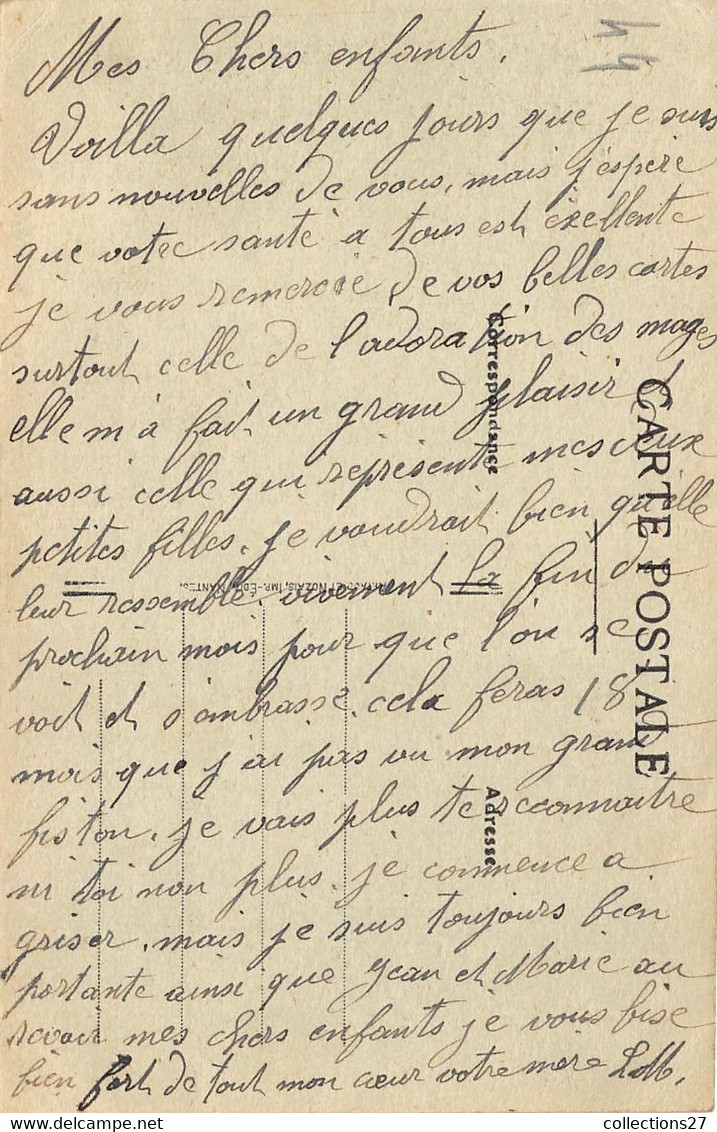 44
Mes Chers enfants.
Voilla quelques jours que je suis
sans nouvelles de vous, mais j'espère
que votre santé a tous est éxellente
je vous remercie de vos belles cartes
surtout celle de l'adoration des mages
elle m'à fait un grand plaisir et
aussi celle qui réprésente mes deux
petites filles. je voudrait bien qu'elle
leur ressemble. vivement la fin du
prochain mois pour que l'on se
voit et s'embrasse, cela feras 18
mois que j'ai pas vu mon grand
fiston. je vais plus te reconnaitre
ni toi non plus. je commence a
griser. mais je suis toujours bien
portante ainsi que Jean et Marie au
revoir mes chers enfants je vous bise
bien fort de tout mon cœur votre mère
CARTE POSTALE
Correspondance
Adresse
NOZAIS, IMP.-ÉDIT. NANTES.
collections27